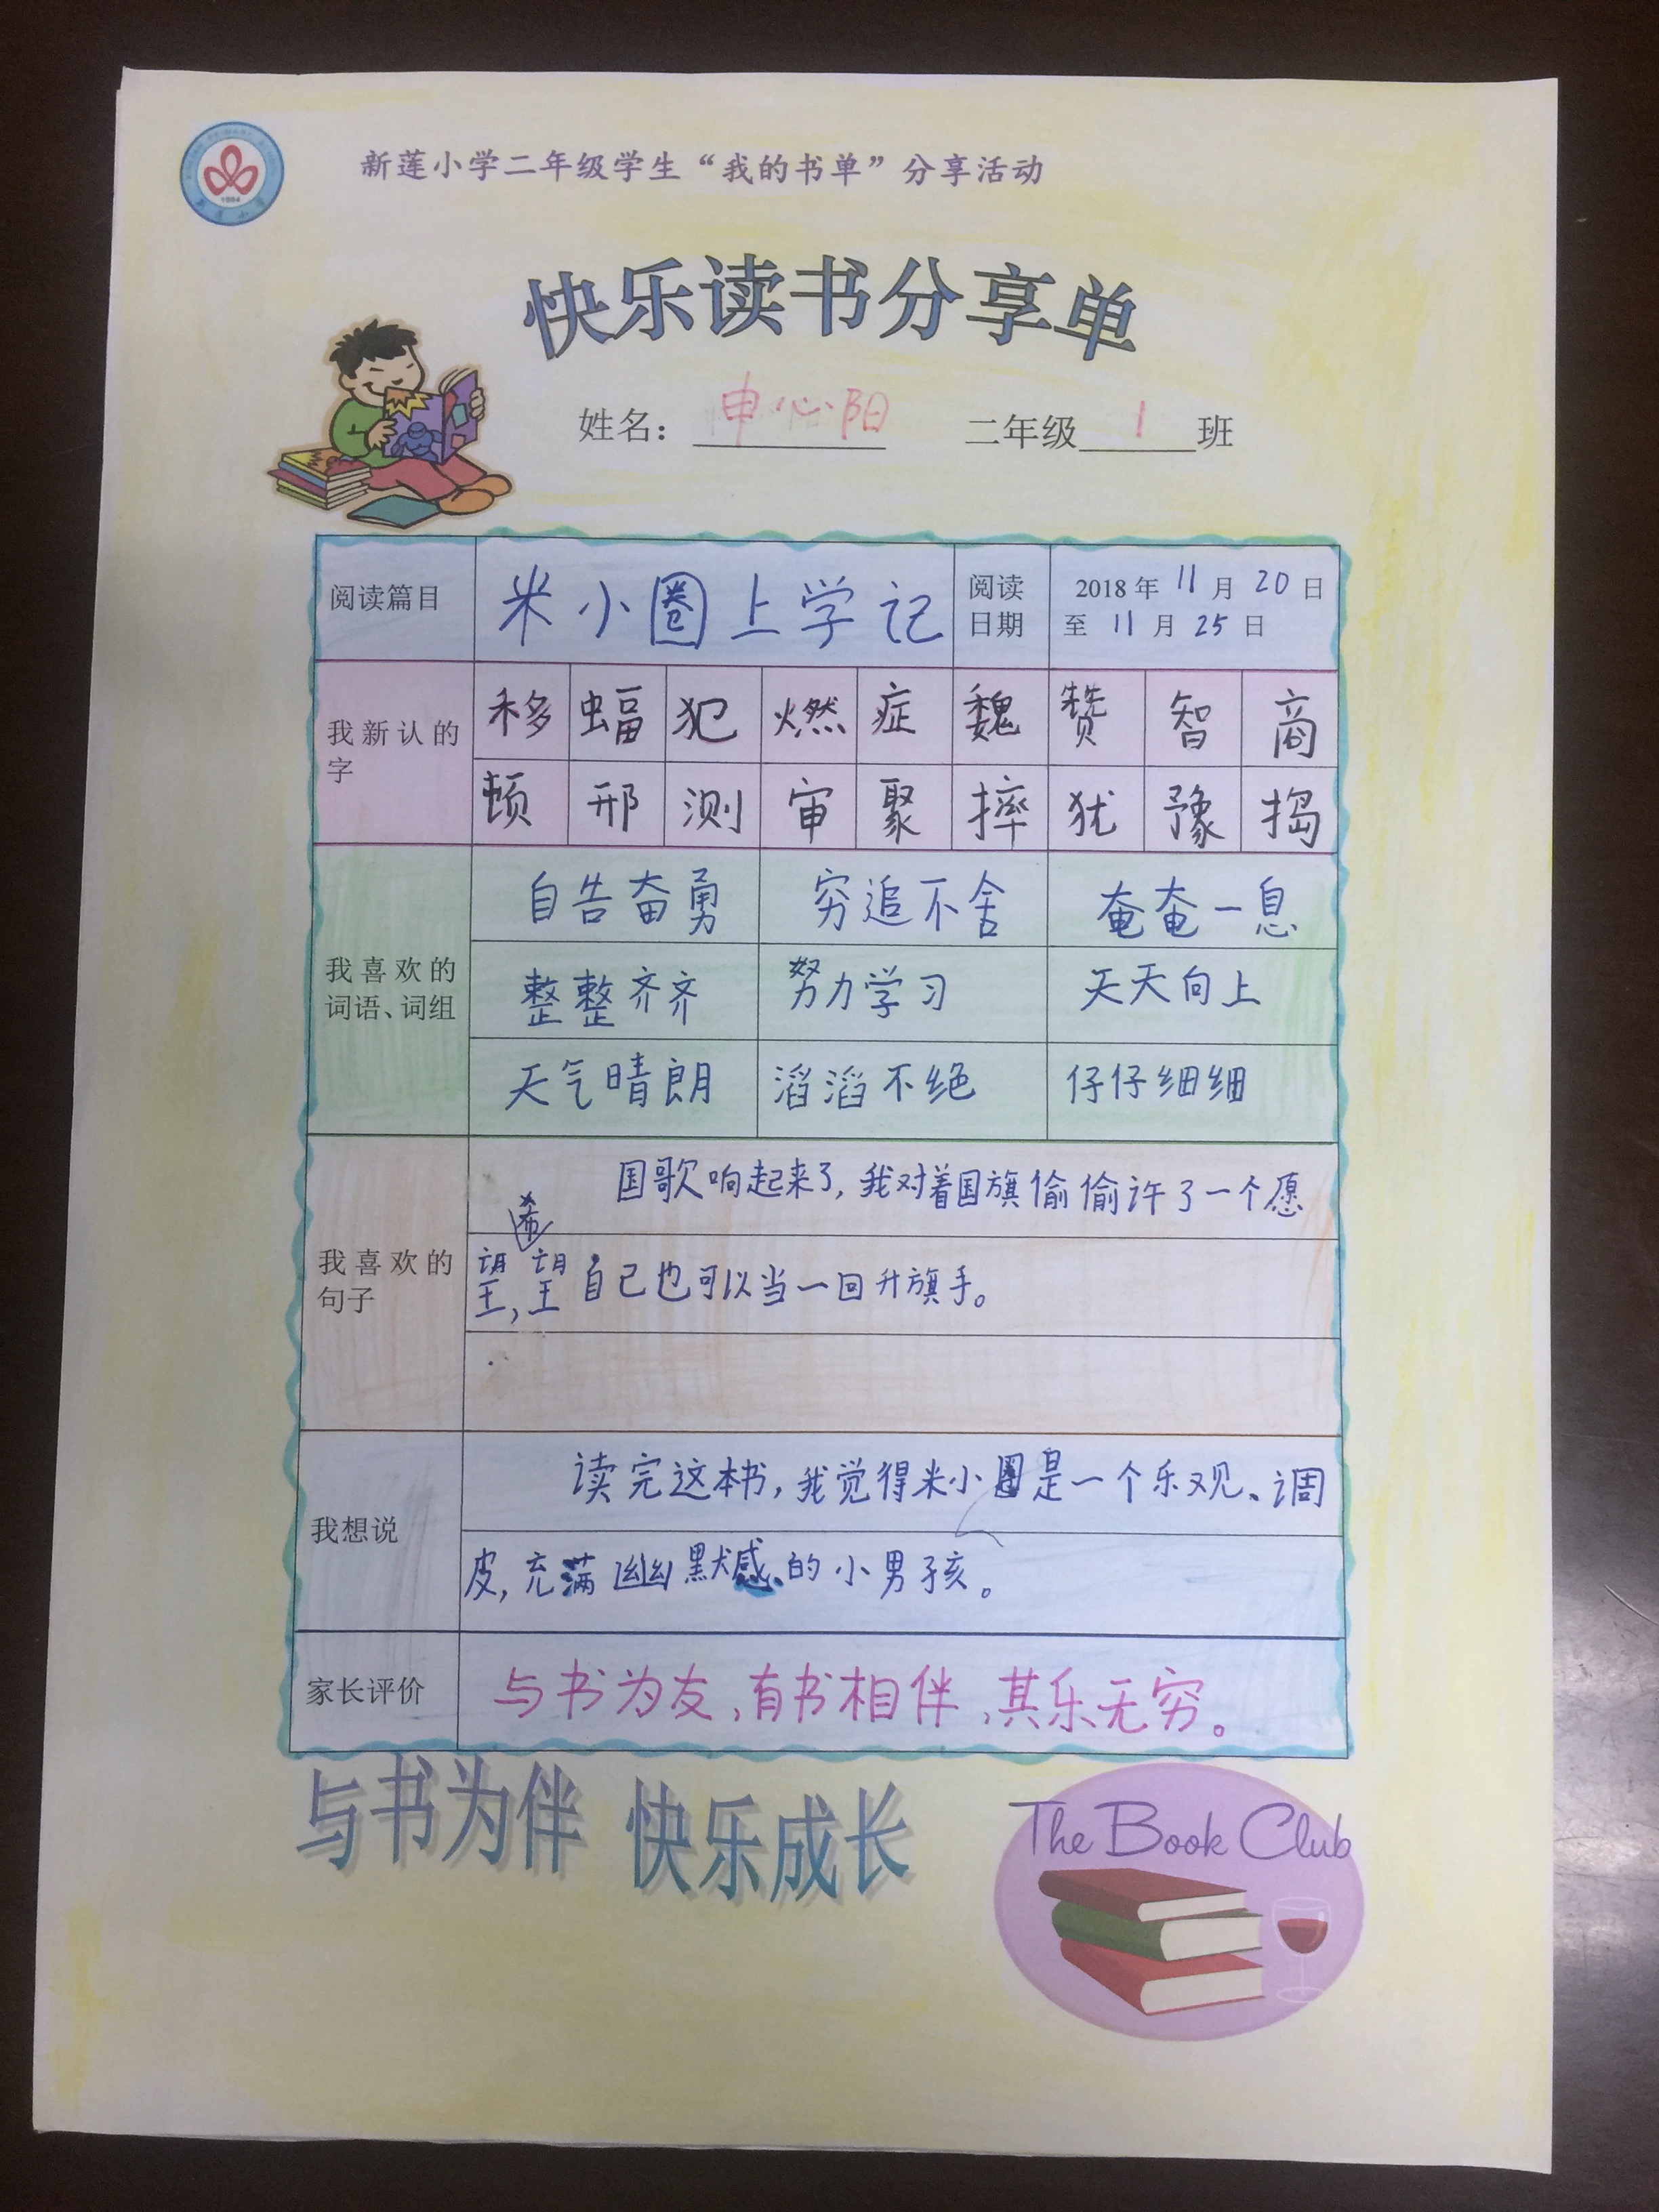 新莲小学二年级学生“我的书单”分享活动
1984
快乐读书分享单
姓名： 申心阳 二年级 1 班
阅读篇目 米小圈上学记 阅读日期 2018年 11 月 20 日
至 11 月 25 日
我新认的字
移 蝠 犯 燃 症 魏 赞 智 商
顿 邢 测 审 聚 摔 犹 豫 捣
我喜欢的词语、词组
自告奋勇 穷追不舍 奄奄一息
整整齐齐 努力学习 天天向上
天气晴朗 滔滔不绝 仔仔细细
我喜欢的句子
国歌响起来了，我对着国旗偷偷许了一个愿
望，希望自己也可以当一回升旗手。
我想说
读完这本书，我觉得米小圈是一个乐观、调
皮，充满幽默感的小男孩。
家长评价 与书为友，有书相伴，其乐无穷。
与书为伴 快乐成长
The Book Club